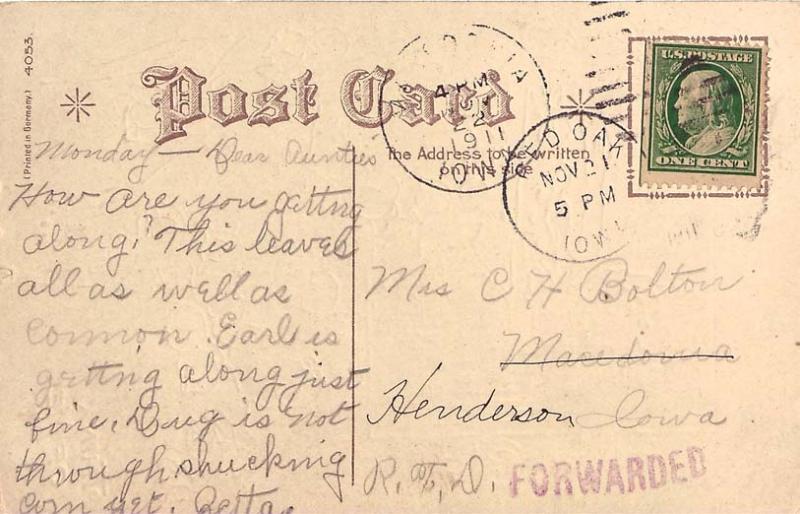 4053.
(Printed in Germany.)
Post Card
The Address to be written
on this side
U.S. POSTAGE
ONE CENT
MACEDONIA
4 PM
1911
IOWA
RED OAK
NOV 21
5 PM
IOWA
Monday — Dear Aunties
How are you getting
along? This leaves
all as well as
common. Earl is
getting along just
fine. Dug is not
through shucking
corn yet. Betta.
Mrs C H Bolton
Macedonia
Henderson Iowa
R. F. D.
FORWARDED